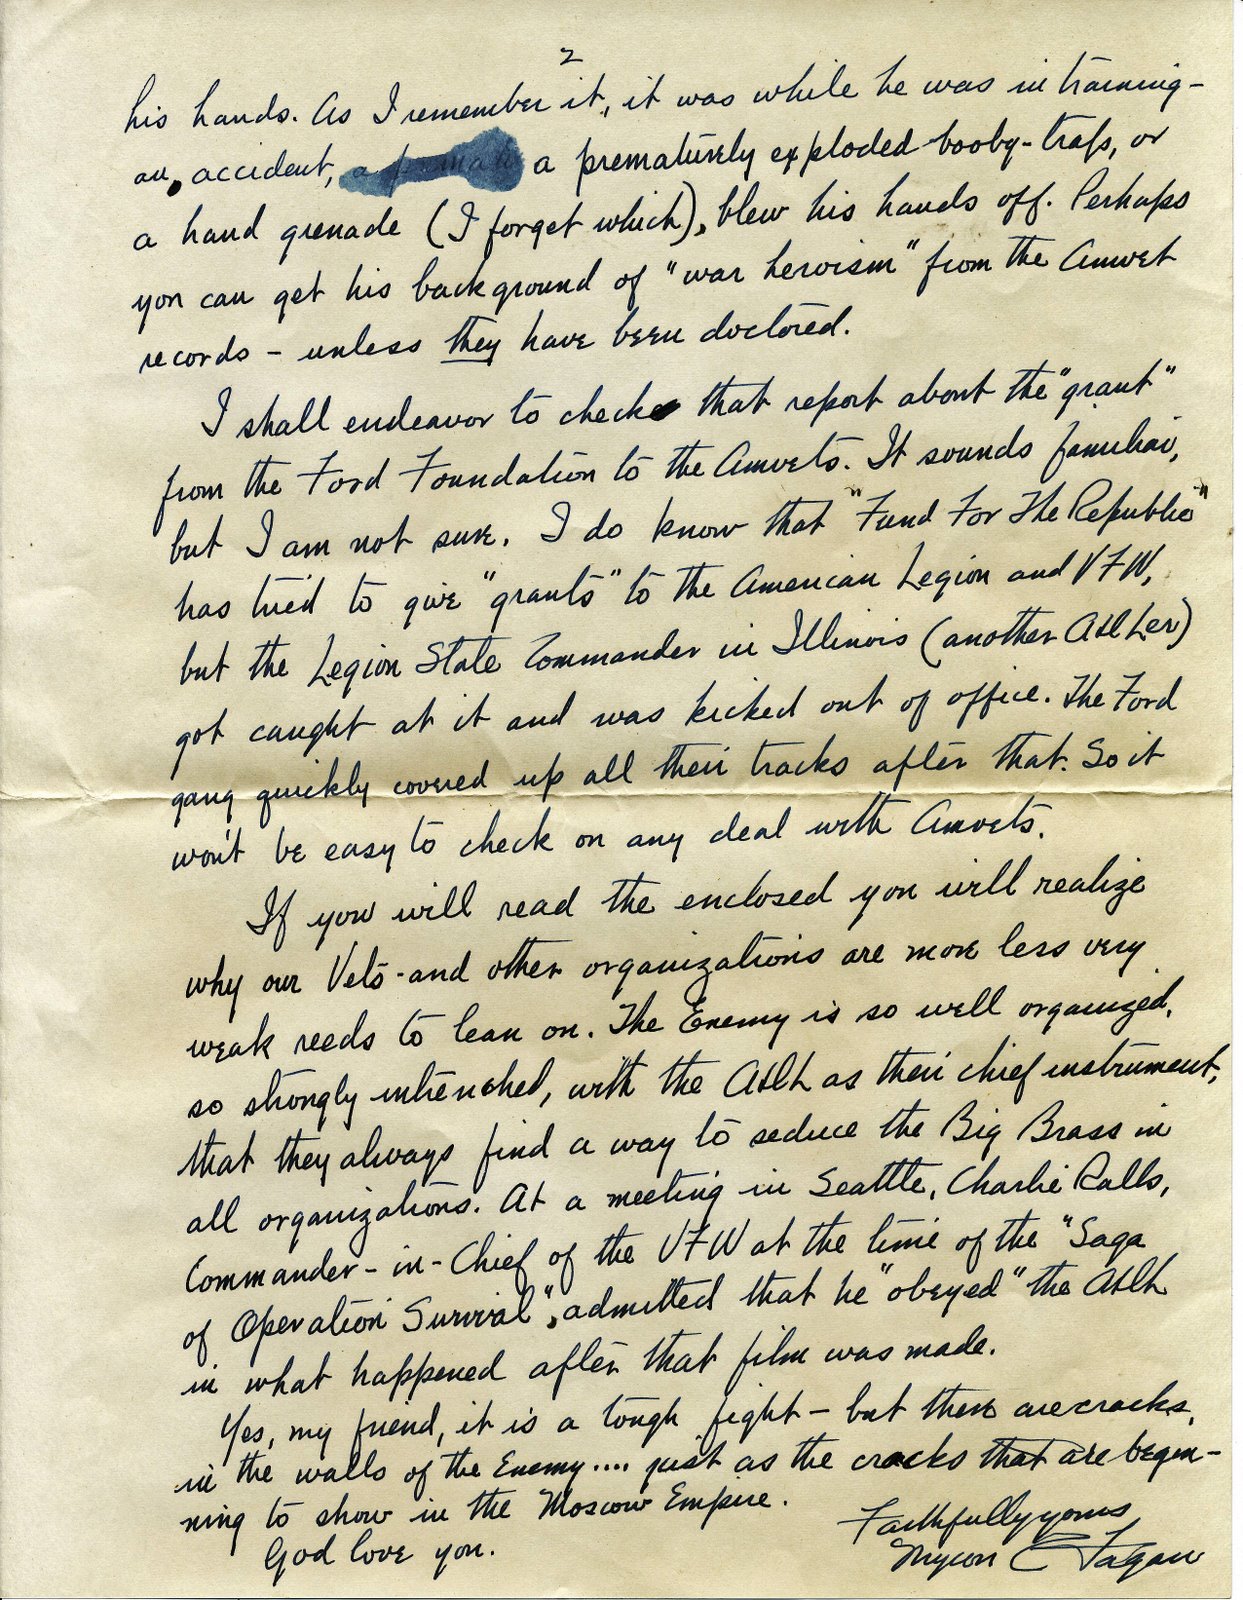 2
his hands. As I remember it, it was while he was in training -
an accident, a prematurely exploded booby-trap, or
a hand grenade (I forget which), blew his hands off. Perhaps
you can get his background of "war heroism" from the Amvet
records - unless they have been doctored.
I shall endeavor to check that report about the "grant"
from the Ford Foundation to the Amvets. It sounds familiar,
but I am not sure. I do know that "Fund For The Republic"
has tried to give "grants" to the American Legion and VFW,
but the Legion State Commander in Illinois (another ADLer)
got caught at it and was kicked out of office. The Ford
gang quickly covered up all their tracks after that. So it
won't be easy to check on any deal with Amvets.
If you will read the enclosed you will realize
why our Vets - and other organizations are more less very
weak reeds to lean on. The Enemy is so well organized,
so strongly intrenched, with the ADL as their chief instrument,
that they always find a way to seduce the Big Brass in
all organizations. At a meeting in Seattle, Charlie Ralls,
Commander-in-Chief of the VFW at the time of the "Saga
of Operation Survival", admitted that he "obeyed" the ADL
in what happened after that film was made.
Yes, my friend, it is a tough fight - but there are cracks
in the walls of the Enemy.... just as the cracks that are begin-
ning to show in the Moscow Empire.
God love you.
Faithfully yours
Myron C Fagan